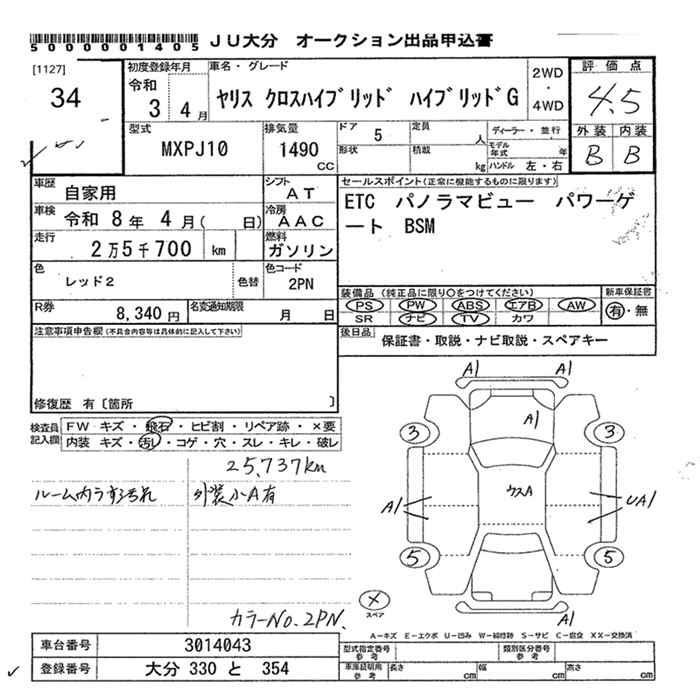 5000001405 JU大分 オークション出品申込書
[1127]
34
初度登録年月
令和
3年 4月
車名・グレード
ヤリス クロスハイブリッド ハイブリッドG
2WD
・
4WD
評価点
4.5
外装 内装
B B
型式
MXPJ10
排気量
1490
CC
ドア 5
定員 人
形状
積載 kg
ディーラー・並行
モデル年式 年
ハンドル 左・右
車歴 自家用
シフト AT
車検 令和 8年 4月( 日)
冷房 AAC
走行 2万5千700 km
燃料 ガソリン
色 レッド2 色替
色コード 2PN
R券 8,340円
名変通知期限 月 日
セールスポイント(正常に機能するものに限ります)
ETC パノラマビュー パワーゲ
ート BSM
装備品(純正品に限り○をつけてください)
PS PW ABS エアB AW
SR ナビ TV カワ
新車保証書
有・無
後日品
保証書・取説・ナビ取説・スペアキー
注意事項申告欄(不具合内容等は具体的に記入して下さい)
修復歴 有〔箇所 〕
検査員記入欄
FW キズ・飛石・ヒビ割・リペア跡・×要
内装 キズ・汚れ・コゲ・穴・スレ・キレ・破レ
25,737km
ルーム内うす汚れ 外装小A有
カラーNo.2PN.
A1 A1
A1
3 3
ウスA
A1 UA1
5 5
×
スペア
A1
A-キズ E-エクボ U-凹み W-補修跡 S-サビ C-腐食 XX-交換済
車台番号 3014043
登録番号 大分 330 と 354
型式指定番号 参考
類別区分番号 参考
車庫証明用 参考
長さ cm 幅 cm 高さ cm